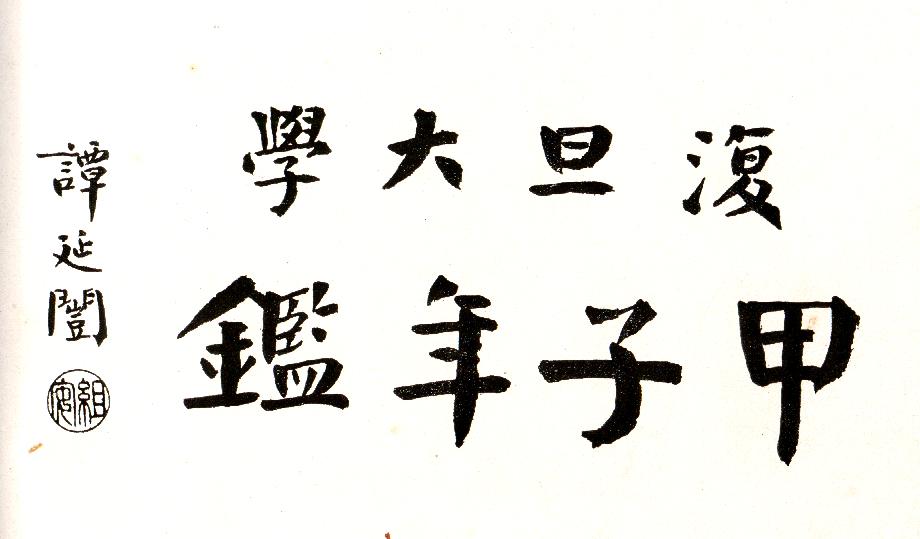 復旦大學
甲子年鑑
譚延闓
組安